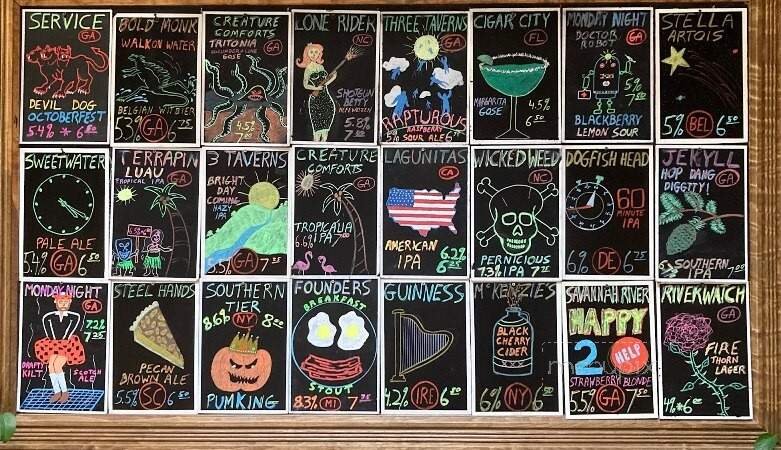 SERVICE
GA
DEVIL DOG
OCTOBERFEST
5.4% * 6.50
BOLD MONK
WALK ON WATER
BELGIAN WITBIER
5.5% GA 6.75
CREATURE
COMFORTS
TRITONIA
GA
GOSE
4.5%
LONE RIDER
NC
SHOTGUN
BETTY
HEFEWEIZEN
5.8%
7.00
THREE TAVERNS
GA
RAPTUROUS
RASPBERRY
5% SOUR ALE
CIGAR CITY
FL
MARGARITA
GOSE
4.5%
6.50
MONDAY NIGHT
DOCTOR
ROBOT
GA
5%
7.50
BLACKBERRY
LEMON SOUR
STELLA
ARTOIS
5% BEL 6.50
SWEETWATER
PALE ALE
5.4% GA 6.50
TERRAPIN
LUAU
TROPICAL IPA
GA
3 TAVERNS
BRIGHT
DAY
COMING
HAZY
IPA
GA 7.25
CREATURE
COMFORTS
GA
TROPICALIA
6.6% IPA 7.00
LAGUNITAS
CA
AMERICAN
IPA
6.2%
6.25
WICKED WEED
NC
PERNICIOUS
7.3% IPA
DOGFISH HEAD
60
MINUTE
IPA
6% DE 6.75
JEKYLL
HOP DANG
DIGGITY!
GA
SOUTHERN
IPA 7.00
MONDAY NIGHT
GA
7.2%
7.25
DRAFTY
KILT
SCOTCH
ALE
STEEL HANDS
PECAN
BROWN ALE
5.5% SC 6.50
SOUTHERN
TIER
8.6% NY 8.00
PUMKING
FOUNDERS
BREAKFAST
STOUT
8.3% MI
GUINNESS
4.2% IRE 6.50
MCKENZIE'S
BLACK
CHERRY
CIDER
6% NY 6.50
SAVANNAH RIVER
HAPPY
2 HELP
STRAWBERRY BLONDE
5% GA 7.50
RIVERWATCH
GA
FIRE
THORN
LAGER
4% * 6.00